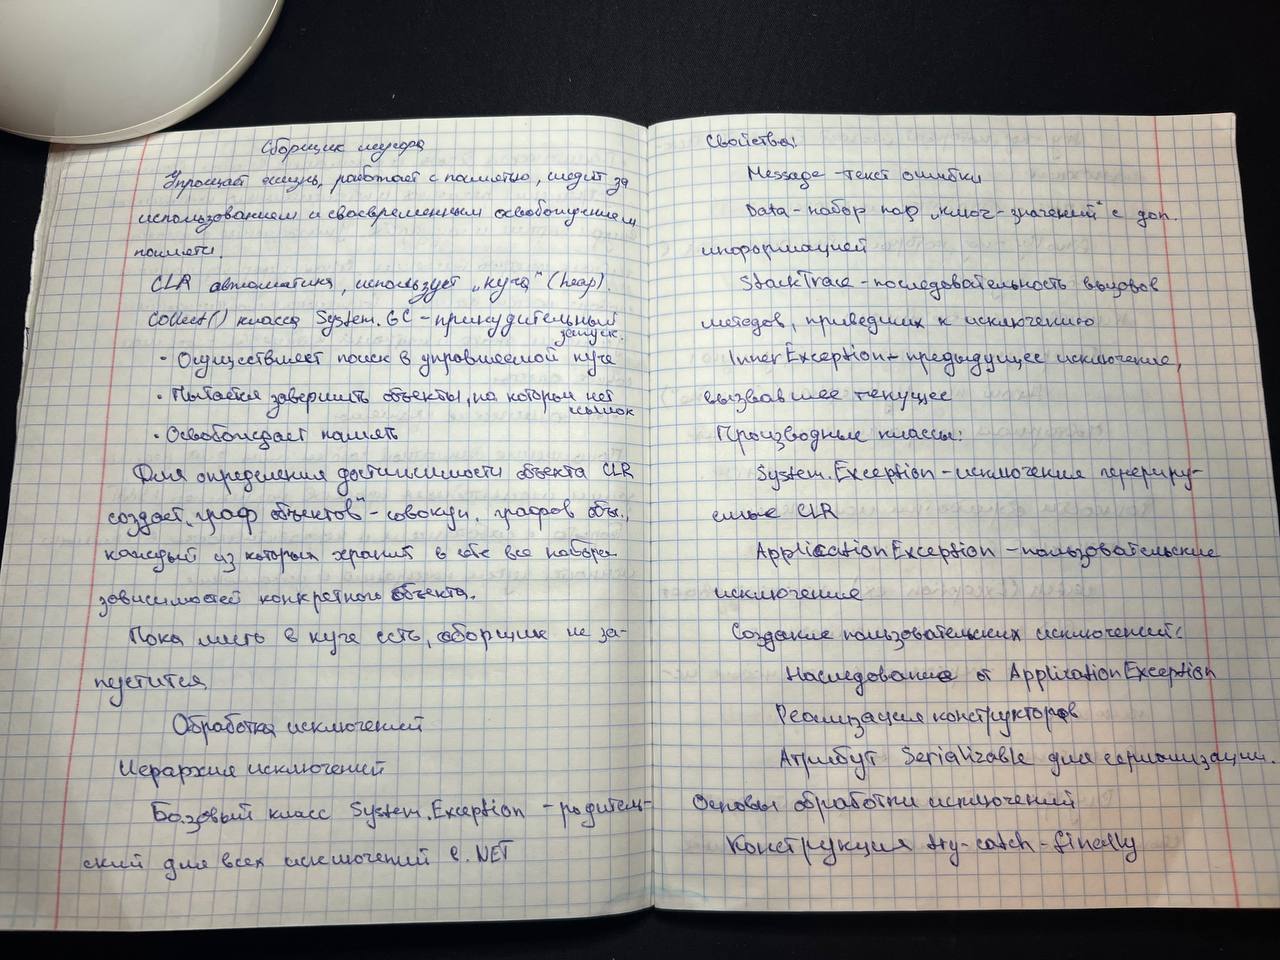 Сборщик мусора
Упрощает жизнь, работает с памятью, следит за
использованием и своевременным освобождением
памяти.
CLR автоматика, использует „куча" (heap).
Collect() класса System.GC - принудительный
запуск.
• Осуществляет поиск в управляемой куче
• Пытается завершить объекты, на котором нет
ссылок
• Освобождает память
Для определения достижимости объекта CLR
создает „граф объектов" - совокуп. графов объ.,
каждый из которых хранит в себе все наборы
зависимостей конкретного объекта.
Пока место в куче есть, сборщик не за-
пустится
Обработка исключений
Иерархия исключений
Базовый класс System.Exception - родитель-
ский для всех исключений в .NET
Свойства:
Message - текст ошибки
Data - набор пар „ключ - значений" с доп.
информацией
StackTrace - последовательность вызовов
методов, приведших к исключению
InnerException - предыдущее исключение,
вызвавшее текущее
Производные классы:
System.Exception - исключения генериру-
емые CLR
ApplicationException - пользовательские
исключение
Создание пользовательских исключений:
Наследование от ApplicationException
Реализация конструкторов
Атрибут Serializable для сериализации.
Основы обработки исключений
Конструкция try-catch-finally